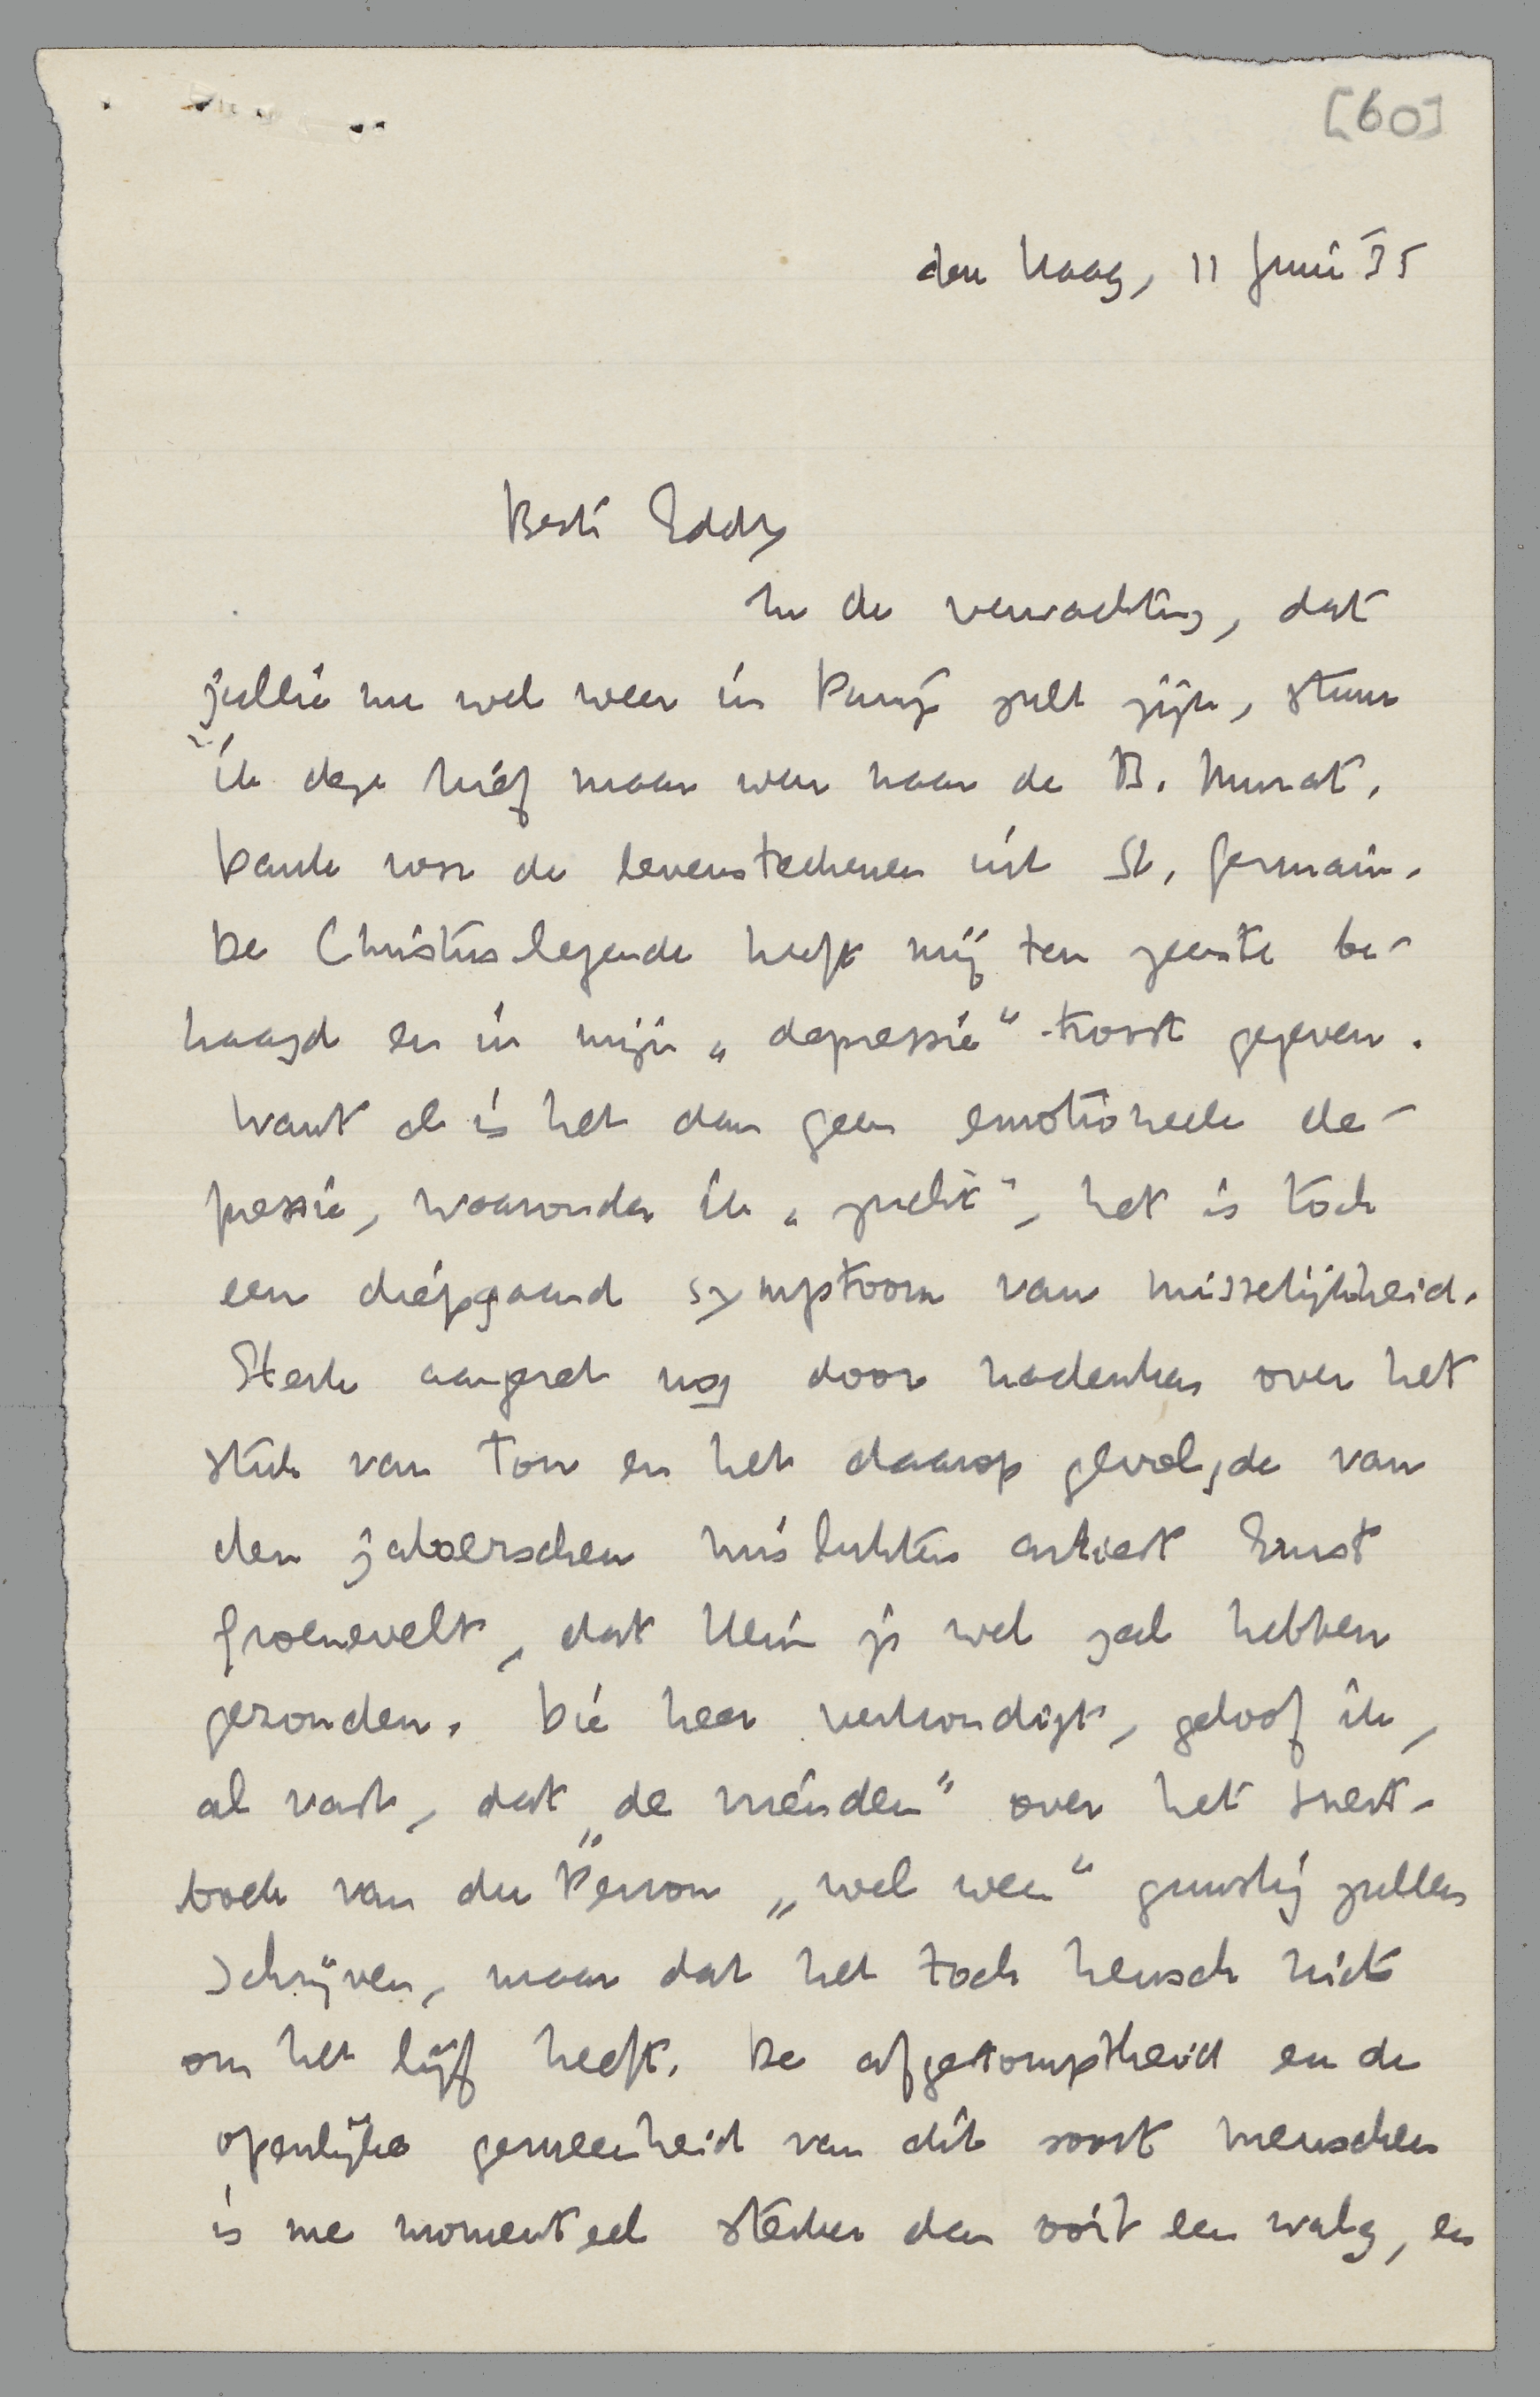 [60]
den Haag, 11 Juni '35
Beste Eddy
In de verwachting, dat
jullie nu wel weer in Parijs zult zijn, stuur
ik deze brief maar weer naar de B. Murat.
Dank voor de levensteekenen uit St. Germain.
De Christuslegende heeft mij ten zeerste be-
haagd en in mijn „depressie" troost gegeven.
Want al is het dan geen emotioneele de-
pressie, waaronder ik „zucht", het is toch
een diepgaand symptoom van misselijkheid.
Sterk aangezet nog door nadenken over het
stuk van Ton en het daarop gevolgde van
den jaloerschen mislukten artiest Ernst
Groenevelt, dat Hein je wel zal hebben
gezonden. Die heer verkondigt, geloof ik,
al vast, dat „de vrienden" over het snert-
boek van du Perron „wel weer" gunstig zullen
schrijven, maar dat het toch heusch niets
om het lijf heeft. De afgestomptheid en de
openlijke gemeenheid van dit soort menschen
is me momenteel sterker dan ooit een walg, en